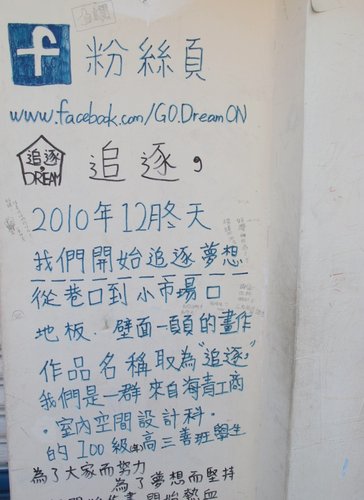 f 粉絲頁
www.facebook.com/GO.DreamON
追逐
DREAM
追逐,
2010年12月冬天
我們開始追逐夢想
從巷口到小市場口
地板．壁面一頭頭的畫作
作品名稱取為"追逐,"
我們是一群來自海青工商
．室內空間設計科．
的100級高三善班學生
為了大家而努力
為了夢想而堅持
開始熱血